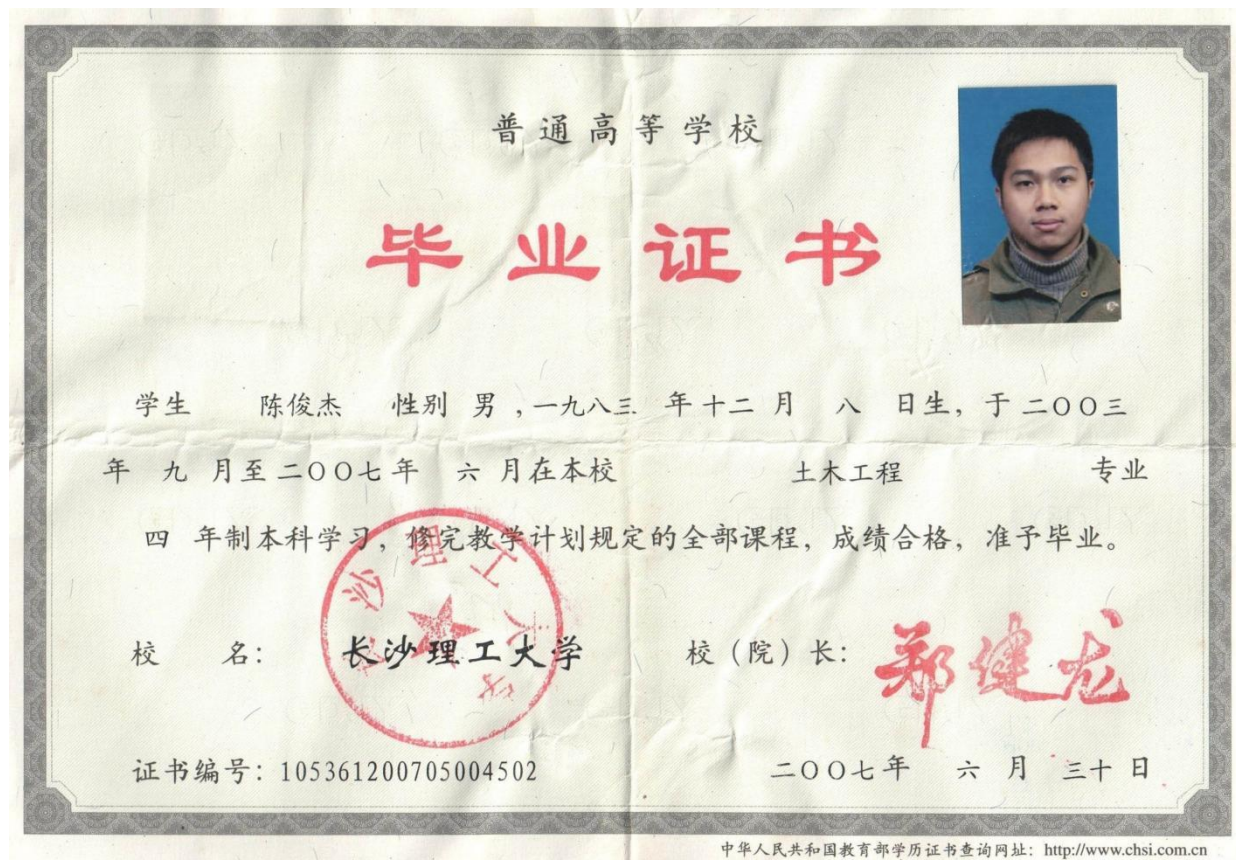 普通高等学校
毕业证书
学生 陈俊杰 性别 男 ,一九八三 年十二 月 八 日生, 于二〇〇三
年 九 月至二〇〇七年 六 月在本校 土木工程 专业
四 年制本科学习, 修完教学计划规定的全部课程, 成绩合格, 准予毕业。
长沙理工大学
校 名: 长沙理工大学 校（院）长: 郑健龙
证书编号: 105361200705004502 二〇〇七年 六 月 三十 日
中华人民共和国教育部学历证书查询网址: http://www.chsi.com.cn